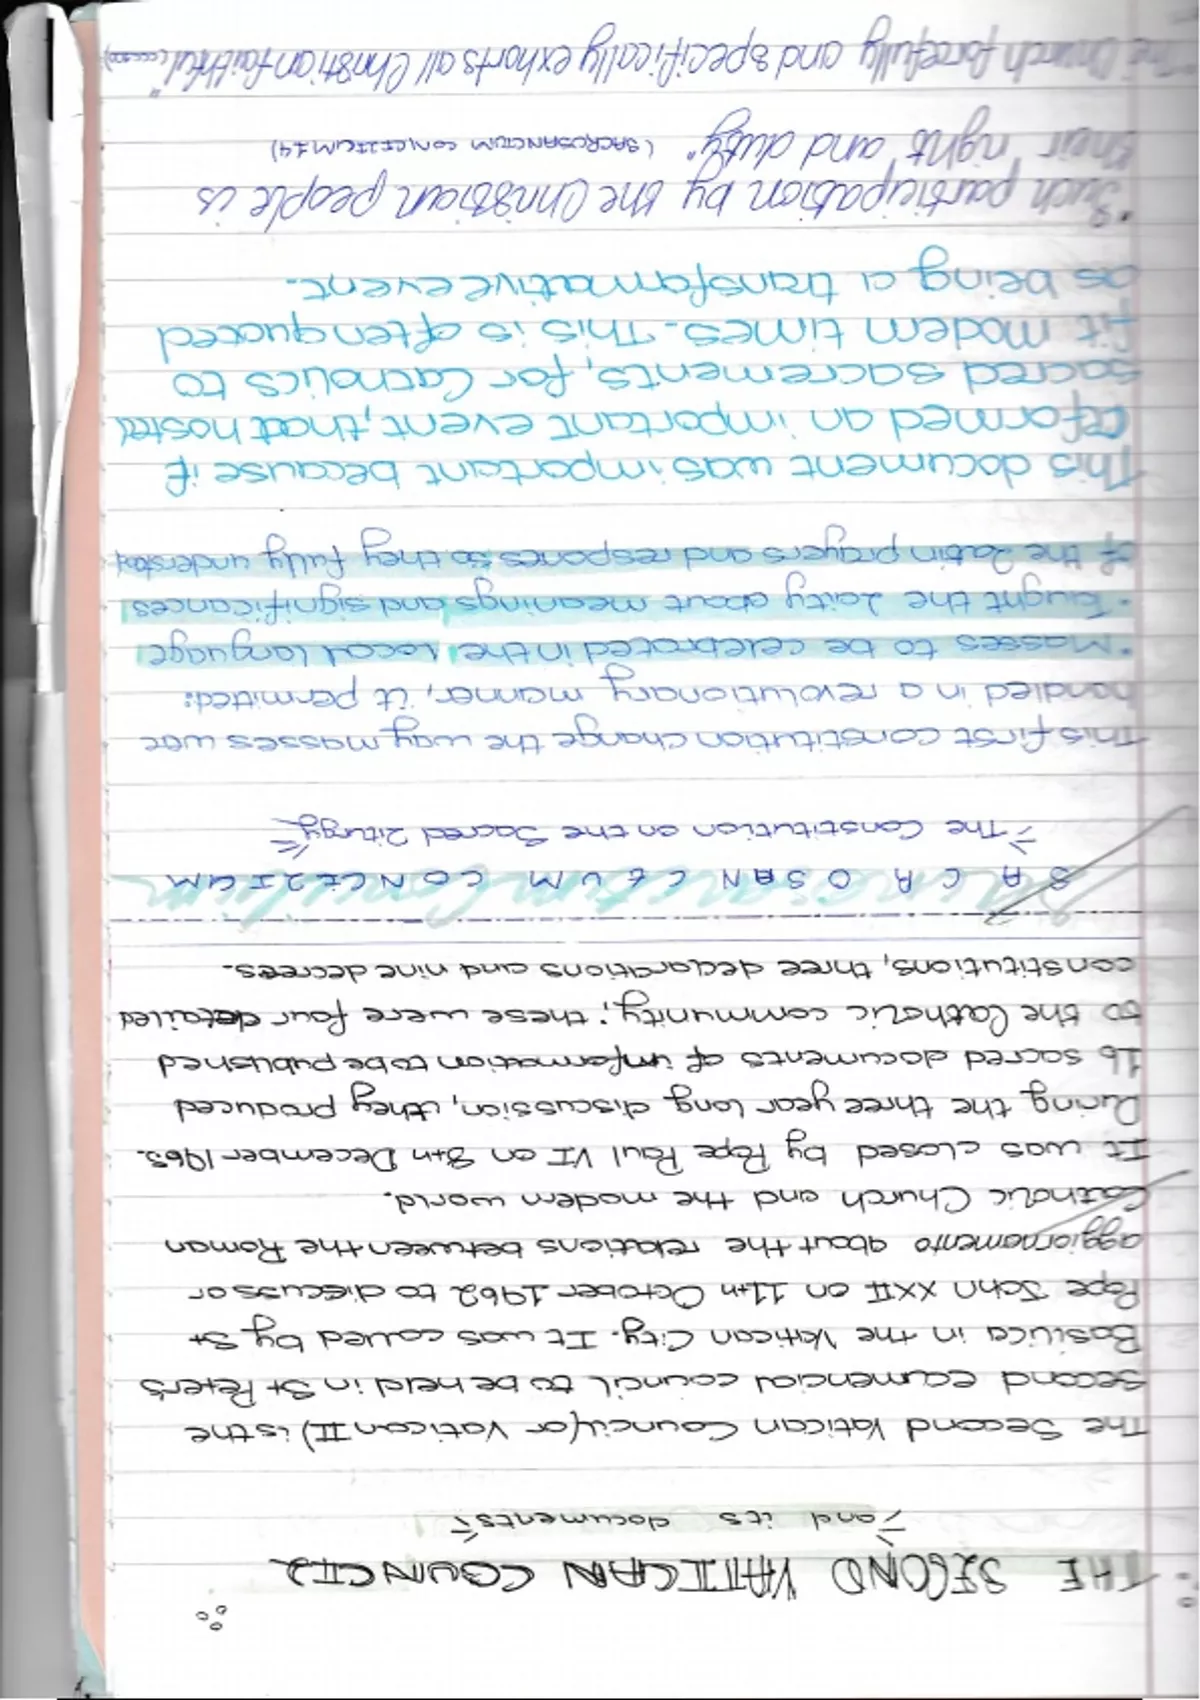 THE SECOND VATICAN COUNCIL
and its documents
The Second Vatican Council (or Vatican II) is the
second ecumenical council to be held in St Peter's
Basilica in the Vatican City. It was called by St
Pope John XXII on 11th October 1962 to discuss or
aggiornamento about the relations between the Roman
Catholic Church and the modern world.
It was closed by Pope Paul VI on 8th December 1965.
During the three year long discussion, they produced
16 sacred documents of information to be published
to the Catholic community; these were four detailed
constitutions, three declarations and nine decrees.
Sacrosanctum Concilium
SACROSANCTUM CONCILIUM
The Constitution on the Sacred Liturgy
This first constitution change the way masses was
handled in a revolutionary manner, it permitted:
• Masses to be celebrated in the local language
• Taught the laity about meanings and significances
of the Latin prayers and responces so they fully understand
This document was important because if
reformed an important event, that hosted
sacred sacrements, for Catholics to
fit modern times. This is often quoted
as being a transformative event.
"Such participation by the Christian people is
their 'right and duty" (SACROSANCTUM CONCILIUM 14)
"The Church forcefully and specifically exhorts all Christian faithful"